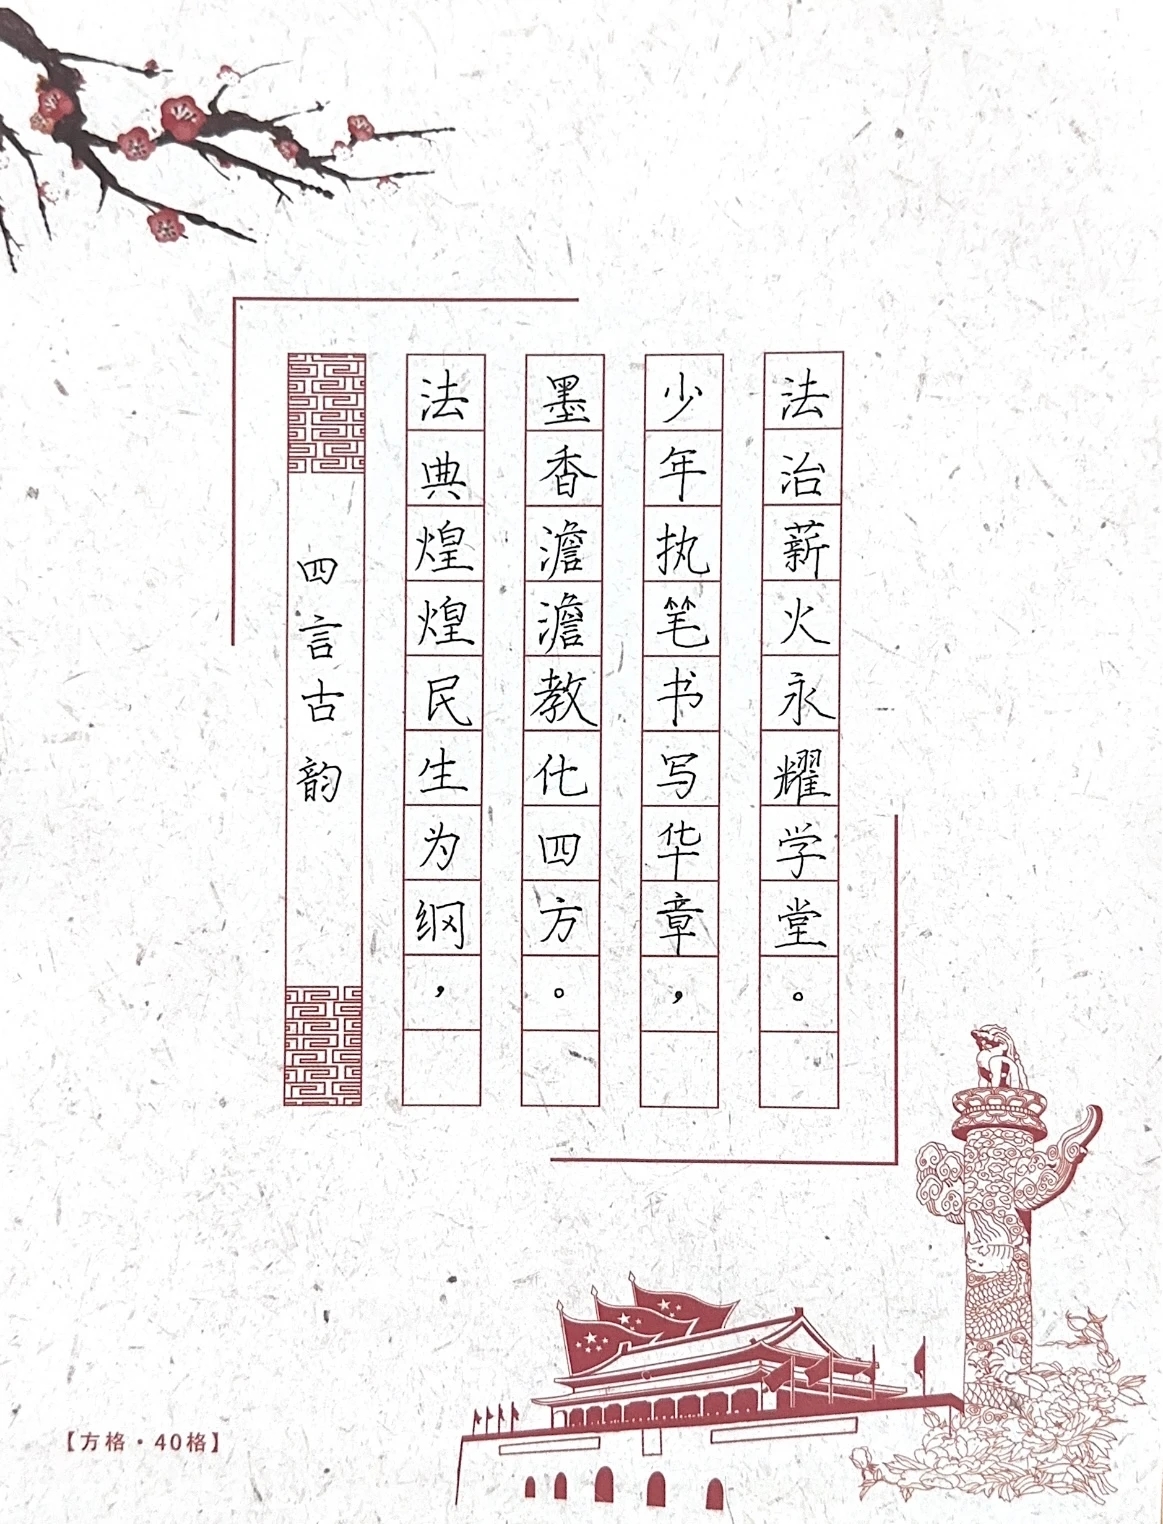 四言古韵
法典煌煌民生为纲，
墨香澹澹教化四方。
少年执笔书写华章，
法治薪火永耀学堂。
【方格·40格】